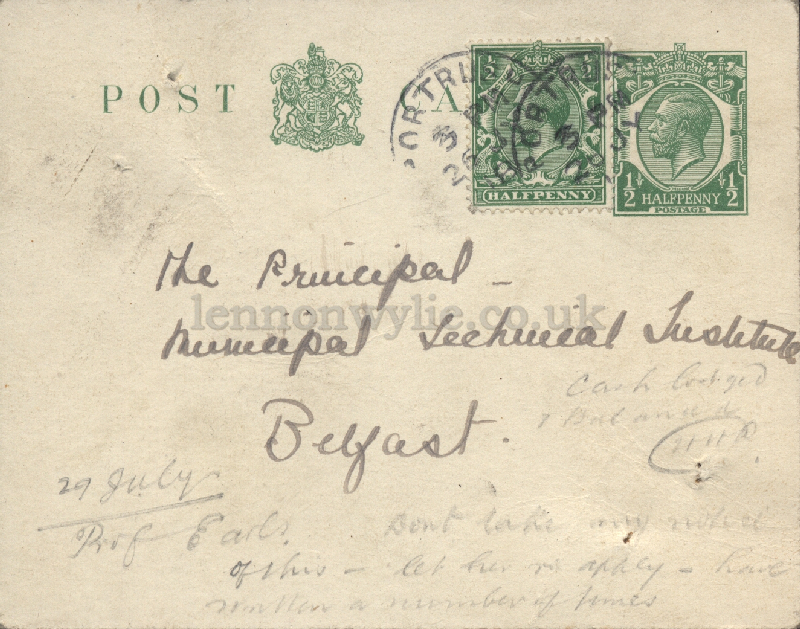 POST CA
½ ½
HALFPENNY
½ ½
HALFPENNY
POSTAGE
PORTRUSH
3 PM
26 JL
PORTRUSH
3 PM
26 JL
The Principal -
lennonwylie.co.uk
Municipal Technical Institute
Belfast.
Cash lodged
29 July
Prof Earls.
Dont take any notice
of this - let her re apply - have
written a number of times